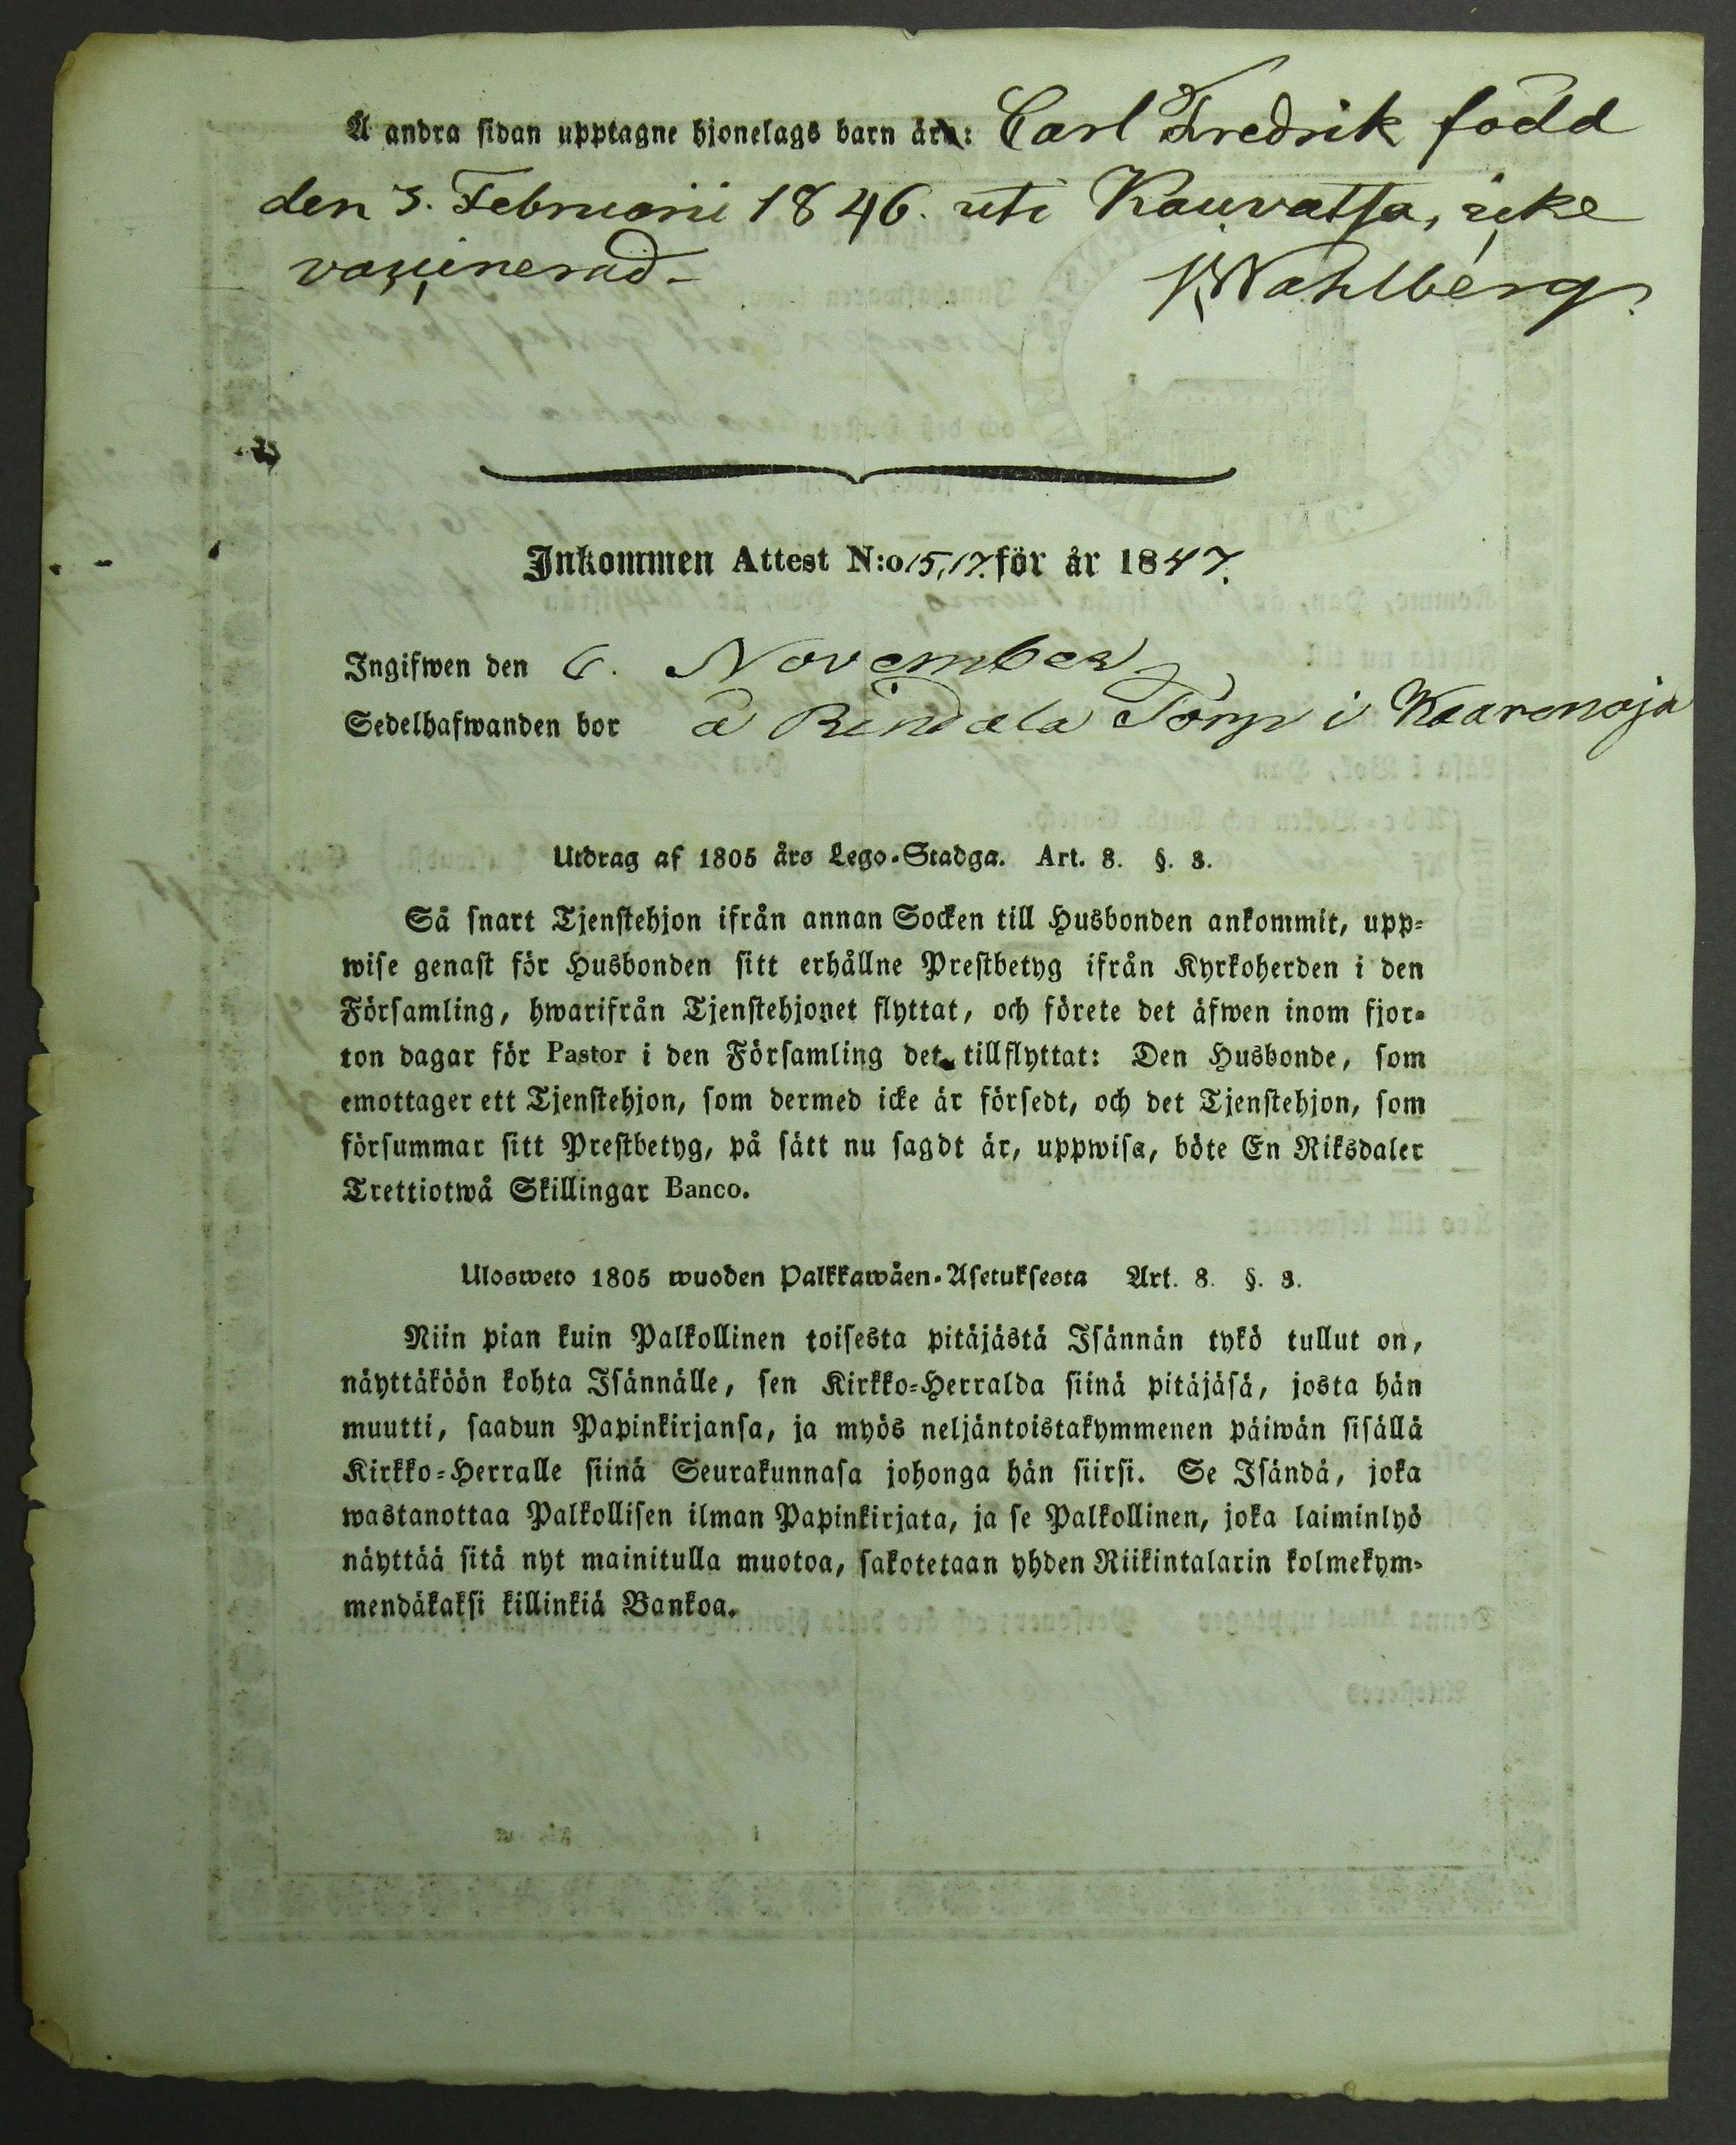 Å andra sidan upptagne hjonelags barn är: Carl Fredrik född
den 3. Februarii 1846. uti Kauvatsa, icke
vaccinerad. Wahlberg.
Inkommen Attest N:o 15,17. för år 1847.
Ingifwen den 6. November
Sedelhafwanden bor å Rindala Torp i Kaarenoja
Utdrag af 1805 års Lego-Stadga. Art. 8. §. 3.
Så snart Tjenstehjon ifrån annan Socken till Husbonden ankommit, upp-
wise genast för Husbonden sitt erhållne Prestbetyg ifrån Kyrkoherden i den
Församling, hwarifrån Tjenstehjonet flyttat, och förete det äfwen inom fjor-
ton dagar för Pastor i den Församling det tillflyttat: Den Husbonde, som
emottager ett Tjenstehjon, som dermed icke är försedt, och det Tjenstehjon, som
försummar sitt Prestbetyg, på sätt nu sagdt är, uppwisa, böte En Riksdaler
Trettiotwå Skillingar Banco.
Ulosweto 1805 wuoden Palkkawäen-Asetuksesta Art. 8. §. 3.
Niin pian kuin Palkollinen toisesta pitäjästä Isännän tykö tullut on,
näyttäköön kohta Isännälle, sen Kirkko-Herralda siinä pitäjäsä, josta hän
muutti, saadun Papinkirjansa, ja myös neljäntoistakymmenen päiwän sisällä
Kirkko-Herralle siinä Seurakunnasa johonga hän siirsi. Se Isändä, joka
wastanottaa Palkollisen ilman Papinkirjata, ja se Palkollinen, joka laiminlyö
näyttää sitä nyt mainitulla muotoa, sakotetaan yhden Riikintalarin kolmekym-
mendäkaksi killinkiä Bankoa.